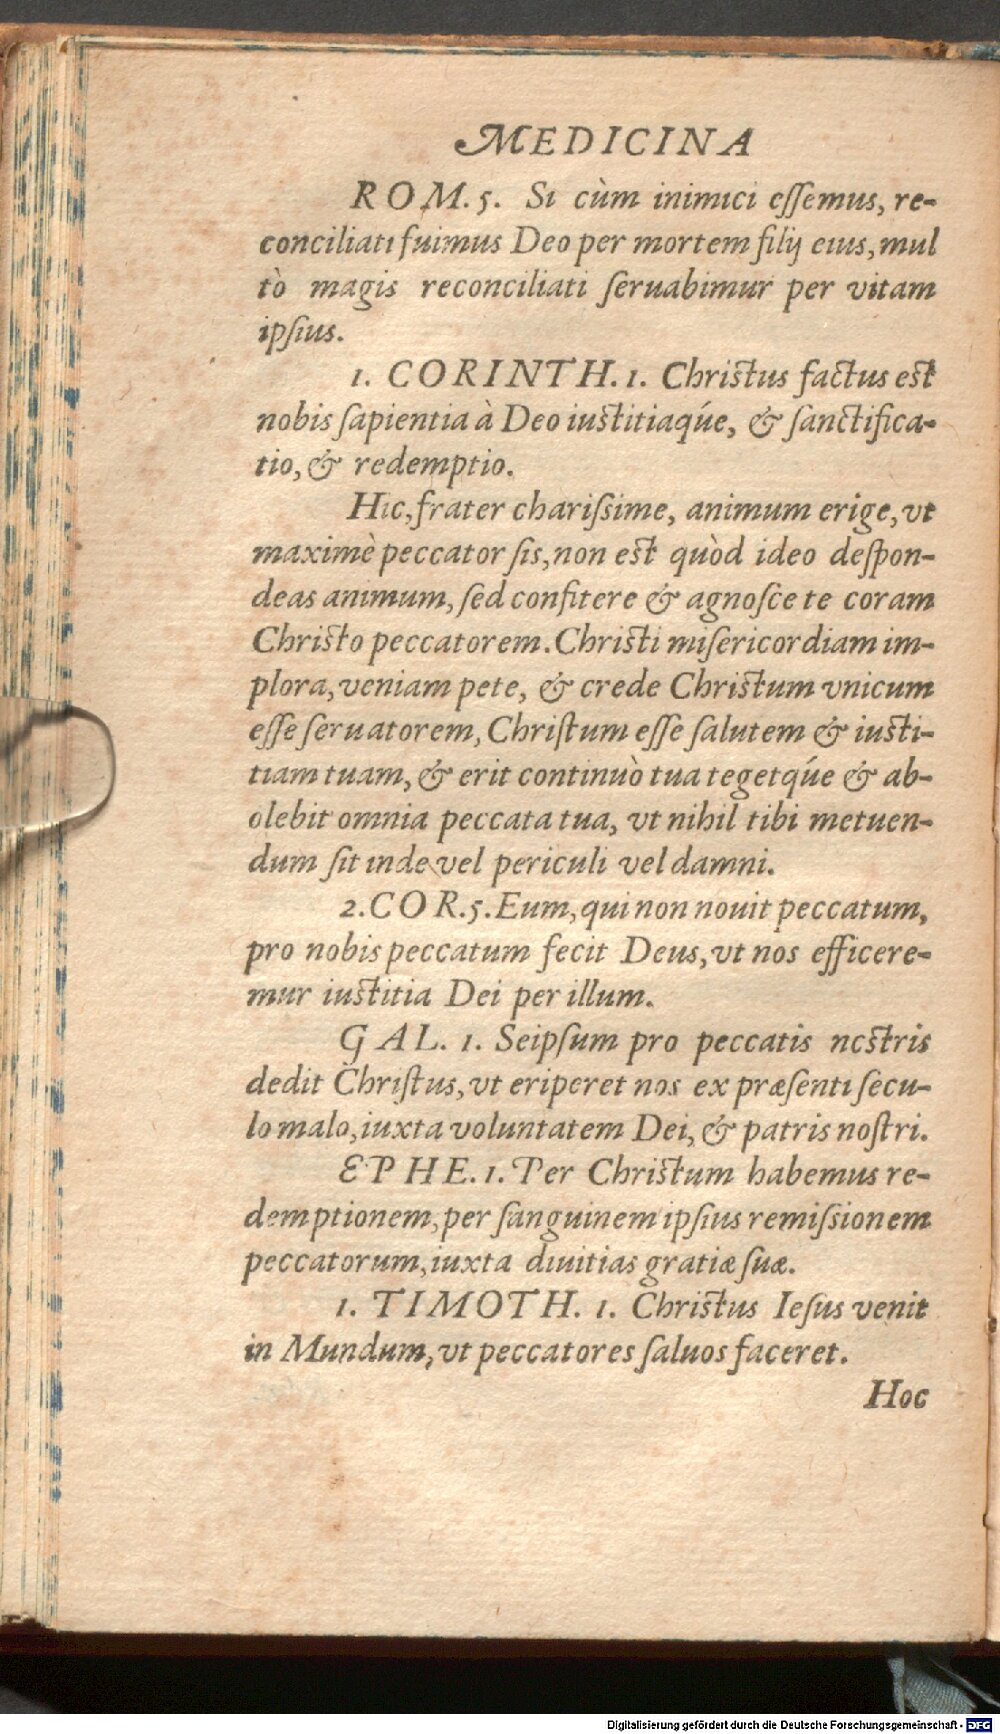 MEDICINA
ROM. 5. Si cùm inimici eſſemus, re-
conciliati fuimus Deo per mortem filij eius, mul
tò magis reconciliati ſeruabimur per vitam
ipſius.
1. CORINTH. 1. Chriſtus factus eſt
nobis ſapientia à Deo iuſtitiaq́ue, & ſanctifica-
tio, & redemptio.
Hic, frater chariſsime, animum erige, vt
maximè peccator ſis, non eſt quòd ideo deſpon-
deas animum, ſed confitere & agnoſce te coram
Chriſto peccatorem. Chriſti miſericordiam im-
plora, veniam pete, & crede Chriſtum vnicum
eſſe ſeruatorem, Chriſtum eſſe ſalutem & iuſti-
tiam tuam, & erit continuò tua tegetq́ue & ab-
olebit omnia peccata tua, vt nihil tibi metuen-
dum ſit inde vel periculi vel damni.
2. COR. 5. Eum, qui non nouit peccatum,
pro nobis peccatum fecit Deus, vt nos efficere-
mur iuſtitia Dei per illum.
GAL. 1. Seipſum pro peccatis noſtris
dedit Chriſtus, vt eriperet nos ex præſenti ſecu-
lo malo, iuxta voluntatem Dei, & patris noſtri.
EPHE. 1. Per Chriſtum habemus re-
demptionem, per ſanguinem ipſius remiſsionem
peccatorum, iuxta diuitias gratiæ ſuæ.
1. TIMOTH. 1. Chriſtus Ieſus venit
in Mundum, vt peccatores ſaluos faceret.
Hoc
Digitalisierung gefördert durch die Deutsche Forschungsgemeinschaft - DFG